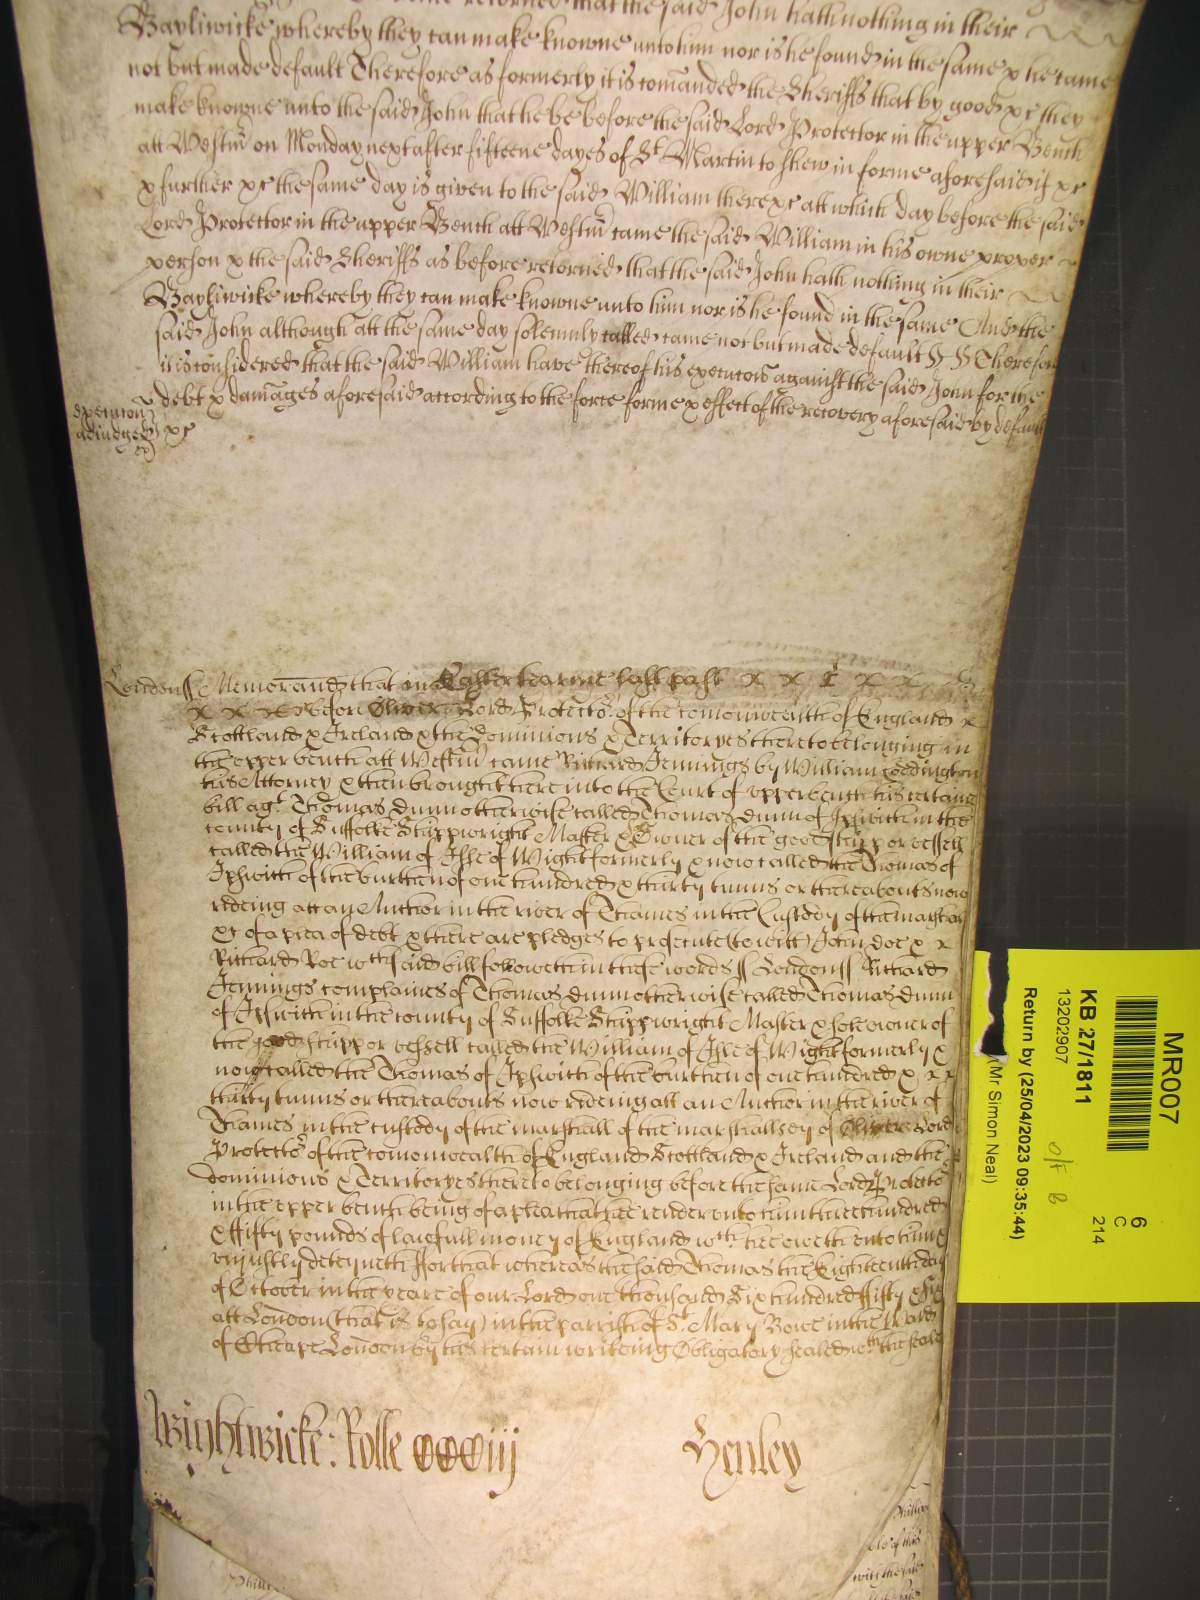 returned that the said John hath nothing in their
Bayliwicke whereby they can make knowne unto him nor is he found in the same & he came
not but made default Therefore as formerly it is comanded the Sheriffs that by good &c they
make knowne unto the said John that he be before the said Lord Protector in the upper Bench
att Westm on Monday next after fifteene dayes of St Martin to shew in forme aforesaid if &c
& further &c the same day is given to the said William there &c att which day before the said
Lord Protector in the upper Bench att Westm came the said William in his owne proper
person & the said Sheriffs as before returned that the said John hath nothing in their
Bayliwicke whereby they can make knowne unto him nor is he found in the same And the
said John although att the same day solemnly called came not but made default Therefore
it is considered that the said William have thereof his execucon against the said John for the
debt & damages aforesaid according to the force forme & effect of the recovery aforesaid by default
&c
execucon
adiudged
London ss Memorand that in Easter tearme last past x x x x x
x x x x before Oliver Lord Protector of the comonwealth of England &
Scottland & Ireland & the Dominions & Territoryes thereto belonging in
the upper bench att Westm came Richard Jennings by William Coddington
his Attorney & then brought here into the Court of upper bench his certaine
bill agt Thomas Dunn otherwise called Thomas Dunn of Ipswich in the
county of Suffolke Shippwright Master & Owner of the good shipp or vessell
called the William of Isle of Wight formerly & now called the Thomas of
Ipswich of the burthen of one hundred & thirty tunns or thereabouts now
rideing att an Anchor in the river of Thames in the Custody of the marshall
&c of a plea of debt & there are pledges to prosecute (to witt) John Doe & x
Richard Roe wch said bill followeth in these words ss London ss Richard
Jennings complaines of Thomas Dunn otherwise called Thomas Dunn
of Ipswich in the county of Suffolke Shippwright Master & sole owner of
the good shipp or vessell called the William of Isle of Wight formerly &
now called the Thomas of Ipswich of the burthen of one hundred & x x
thirty tunns or thereabouts now rideing att an Anchor in the river of
Thames in the custody of the marshall of the marshallsey of Oliver Lord
Protector of the comonwealth of England Scottland & Ireland and the
dominions & Territoryes thereto belonging before the same Lord Protector
in the upper bench being of a plea that hee render unto him three hundred
& fifty pounds of lawfull money of England wch hee oweth unto him &
uniustly deteyneth For that whereas the said Thomas the Eighteenth day
of October in the yeare of our Lord one thousand Six hundred fifty
att London (that is to say) in the parrish of St Mary Bowe in the Ward
of Cheape London by his certain writeing Obligatory sealed wth the seale
Wightwicke: Rolle CCCCiij
Henley
MR007
KB 27/1811
13202907
Return by (25/04/2023 09:35:44)
(Mr Simon Neal)
6
C
214